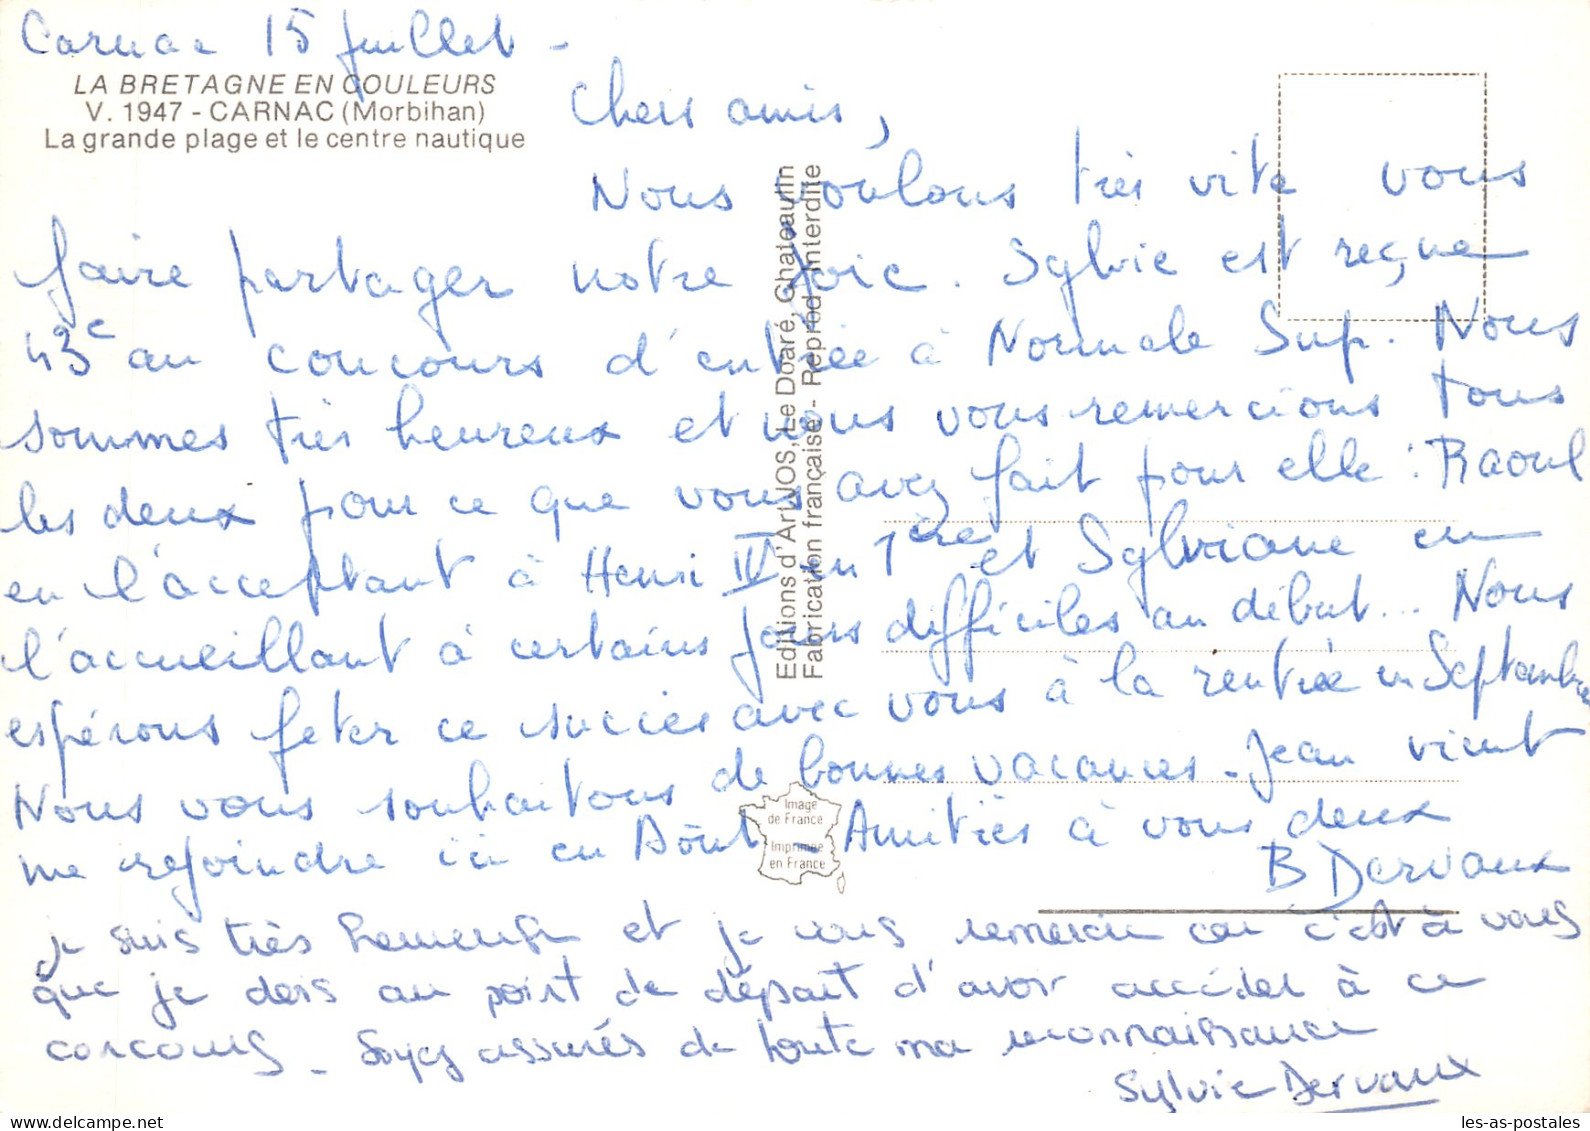 Carnac 15 Juillet -
LA BRETAGNE EN COULEURS
V. 1947 - CARNAC (Morbihan)
La grande plage et le centre nautique
Chers amis,
Nous voulons très vite vous
faire partager notre joie. Sylvie est reçue
43e au concours d'entrée à Normale Sup. Nous
sommes très heureux et nous vous remercions tous
les deux pour ce que vous avez fait pour elle : Raoul
en l'acceptant à Henri IV en 1ère et Sylviane en
l'accueillant à certains jours difficiles au début... Nous
espérons feter ce succès avec vous à la rentrée en Septembre
Nous vous souhaitons de bonnes vacances - Jean vient
me rejoindre ici en Août - Amitiés à vous deux
B Dervaux
je suis très heureuse et je vous remercie car c'est à vous
que je dois au point de départ d'avoir accéder à ce
concours - Soyez assurés de toute ma reconnaissance
Sylvie Dervaux
Editions d'Art JOS, Le Doaré, Chateaulin
Fabrication française - Reprod. interdite
Image
de France
Imprimée
en France
les-as-postales